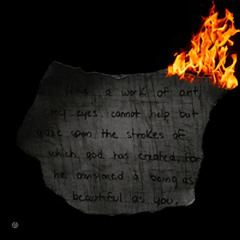 like a work of art,
my eyes cannot help but
gaze upon the strokes of
which god has created, for
he envisioned a being as
beautiful as you.